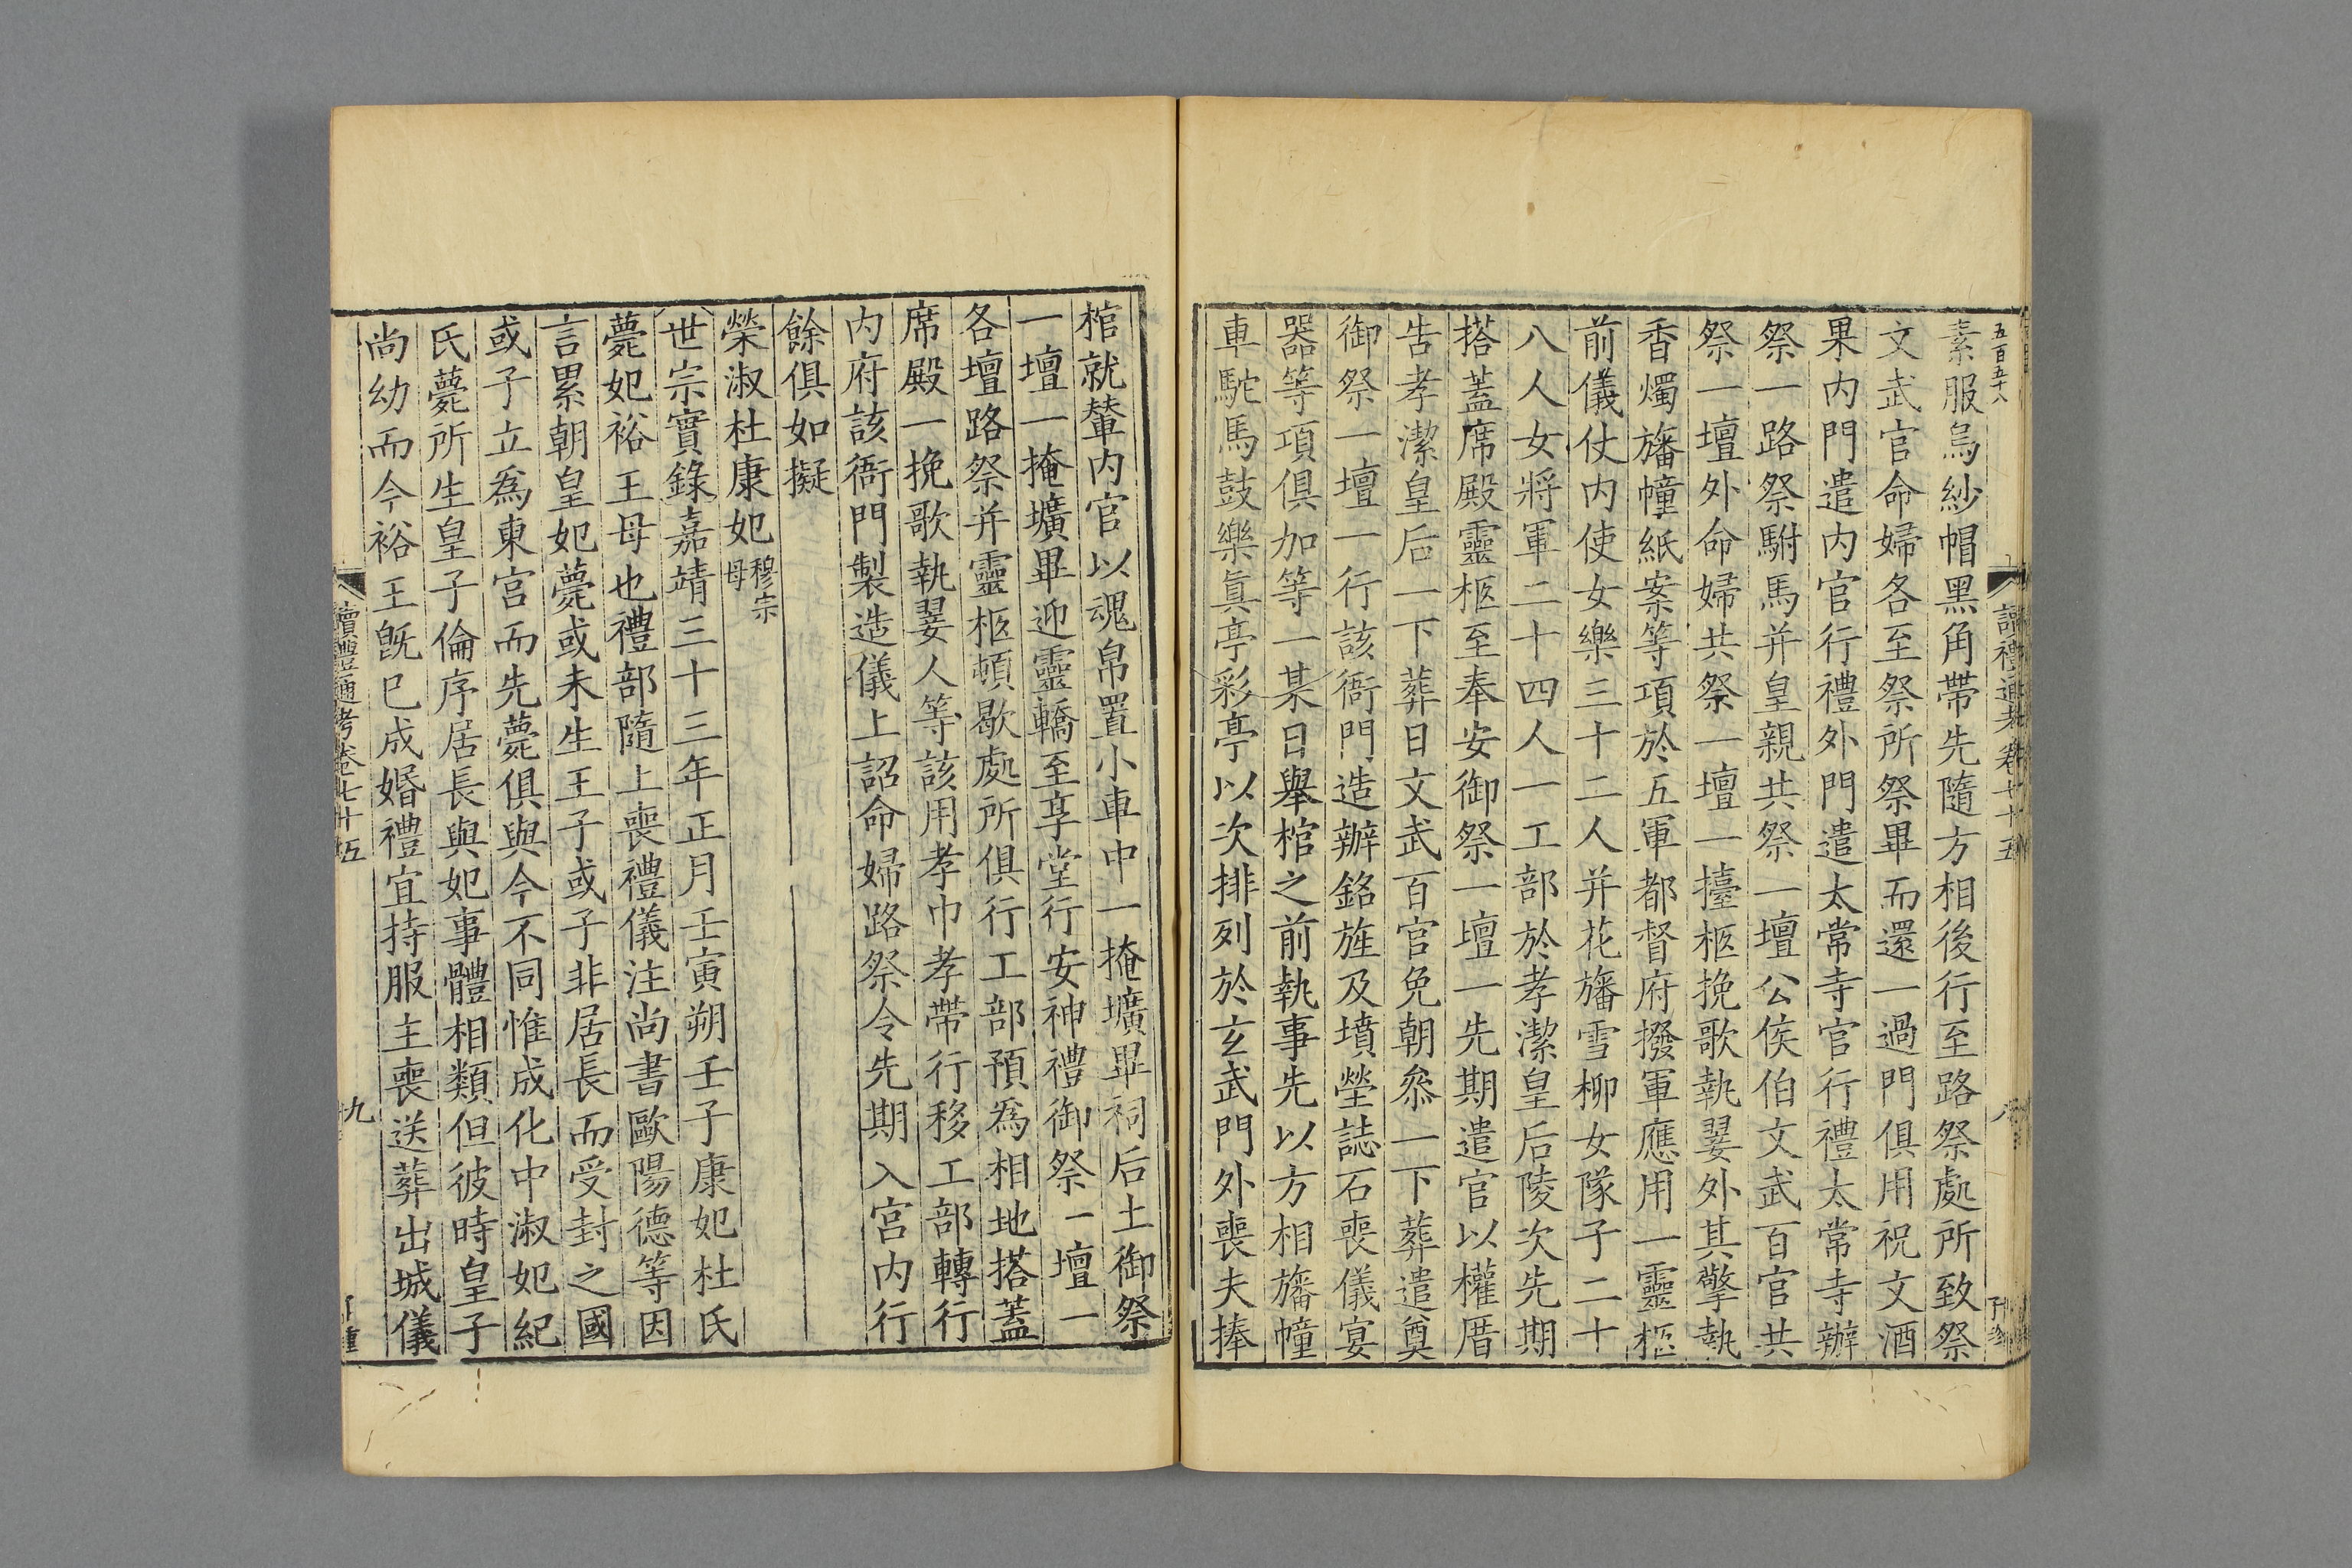 五百五十八
讀禮通考卷七十五
八
素服烏紗帽黑角帶先隨方相後行至路祭處所致祭
文武官命婦各至祭所祭畢而還一過門俱用祝文酒
果内門遣内官行禮外門遣太常寺官行禮太常寺辦
祭一路祭駙馬并皇親共祭一壇公侯伯文武百官共
祭一壇外命婦共祭一壇一擡柩挽歌執翣外其擎執
香燭旛幢紙案等項於五軍都督府撥軍應用一靈柩
前儀仗内使女樂三十二人并花旛雪柳女隊子二十
八人女將軍二十四人一工部於孝潔皇后陵次先期
搭蓋席殿靈柩至奉安御祭一壇一先期遣官以權厝
告孝潔皇后一下葬日文武百官免朝叅一下葬遣奠
御祭一壇一行該衙門造辦銘旌及墳塋誌石喪儀宴
器等項俱加等一某日舉棺之前執事先以方相旛幢
車駝馬鼓樂眞亭彩亭以次排列於玄武門外喪夫捧
棺就輦内官以魂帛置小車中一掩壙畢祠后土御祭
一壇一掩壙畢迎靈轎至享堂行安神禮御祭一壇一
各壇路祭并靈柩頓歇處所俱行工部預爲相地搭蓋
席殿一挽歌執翣人等該用孝巾孝帶行移工部轉行
内府該衙門製造儀上詔命婦路祭令先期入宮内行
餘俱如擬
榮淑杜康妃穆宗母
世宗實錄嘉靖三十三年正月壬寅朔壬子康妃杜氏
薨妃裕王母也禮部隨上喪禮儀注尚書歐陽德等因
言累朝皇妃薨或未生王子或子非居長而受封之國
或子立爲東宮而先薨俱與今不同惟成化中淑妃紀
氏薨所生皇子倫序居長與妃事體相類但彼時皇子
尚幼而今裕王既已成婚禮宜持服主喪送葬出城儀
讀禮通考卷七十五
九